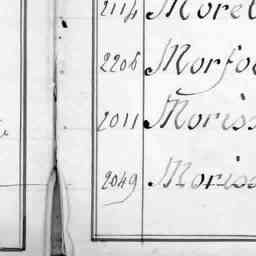 2114 Morel
2206 Morfo
2011 Moriss
2049 Moriss